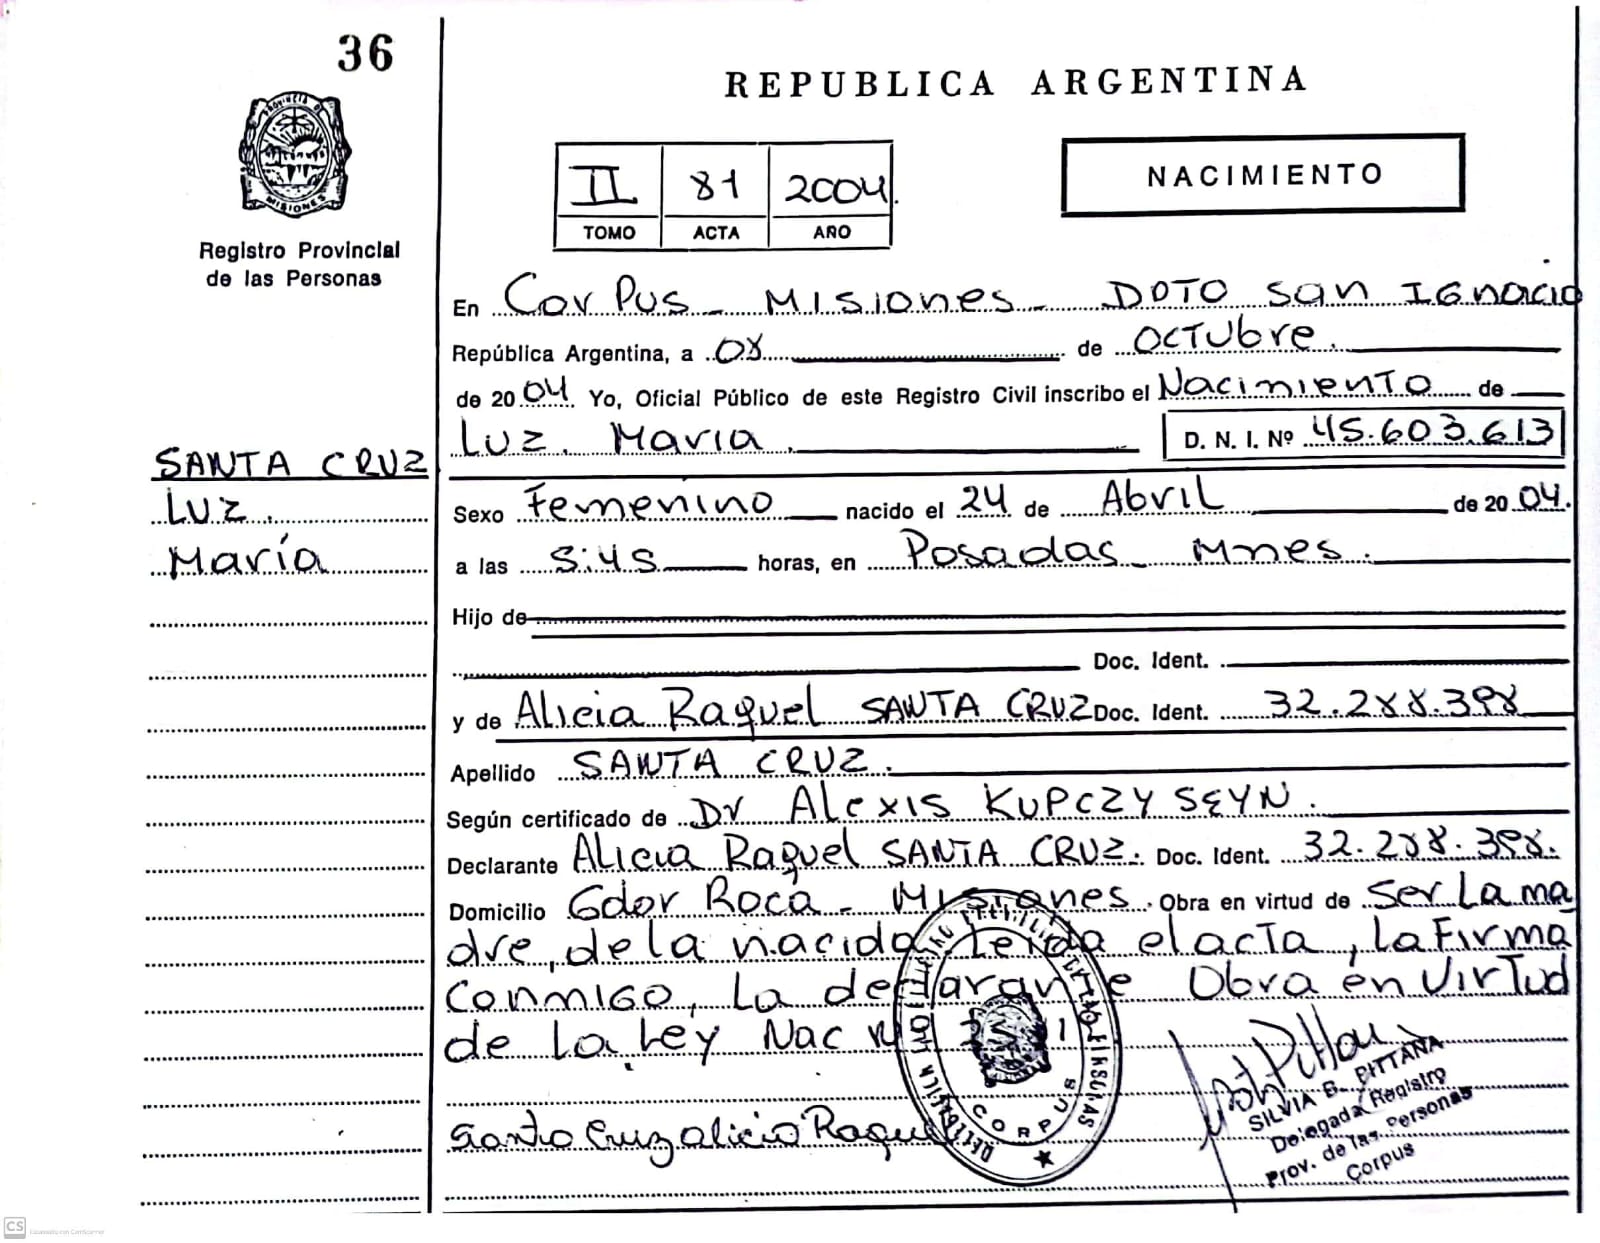 36
REPUBLICA ARGENTINA
PROVINCIA DE
MISIONES
Registro Provincial
de las Personas
II 81 2004.
TOMO ACTA AÑO
NACIMIENTO
En Corpus - Misiones - DPTO San Ignacio
República Argentina, a 08 de OCTUbre.
de 2004 Yo, Oficial Público de este Registro Civil inscribo el Nacimiento de
Luz. Maria. D. N. I. Nº 45.603.613
SANTA CRUZ
Luz.
María
Sexo Femenino nacido el 24 de Abril de 2004.
a las 5:45 horas, en Posadas - Mnes.
Hijo de
Doc. Ident.
y de Alicia Raquel SANTA CRUZ Doc. Ident. 32.288.398
Apellido SANTA CRUZ.
Según certificado de Dr ALexis KUPCZYSEYN.
Declarante Alicia Raquel SANTA CRUZ. Doc. Ident. 32.288.398.
Domicilio Gdor Roca - Misiones. Obra en virtud de Ser La ma
dre, de la nacida Leida el acta, la Firma
conmigo, La declarante Obra en virtud
de la Ley Nac
Santa Cruz alicia Raquel
CORPUS
SILVIA B. PITTANA
Delegada Registro
Prov. de las Personas
Corpus
CS